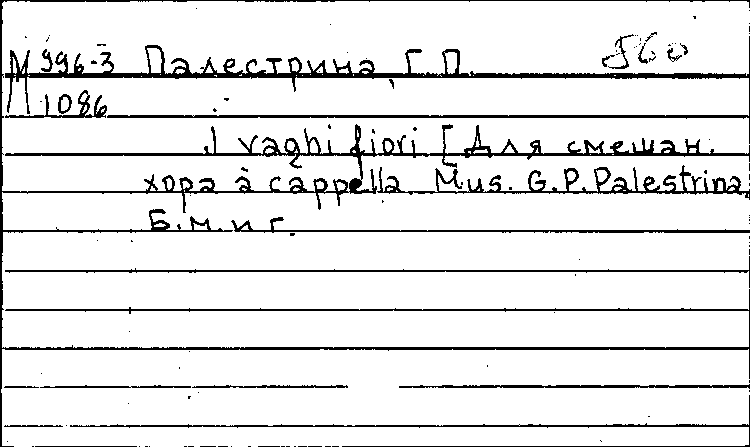 М 996-3 Палестрина, Г. П. 860
1086
I vaghi fiori [Для смешан.
хора à cappella. Mus. G.P. Palestrina.
Б.м. и г.